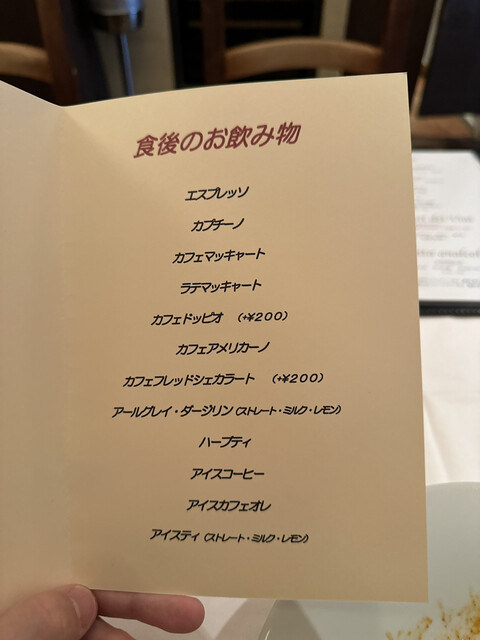 食後のお飲み物
エスプレッソ
カプチーノ
カフェマッキャート
ラテマッキャート
カフェドッピオ (+¥200)
カフェアメリカーノ
カフェフレッドシェカラート (+¥200)
アールグレイ・ダージリン(ストレート・ミルク・レモン)
ハーブティ
アイスコーヒー
アイスカフェオレ
アイスティ(ストレート・ミルク・レモン)